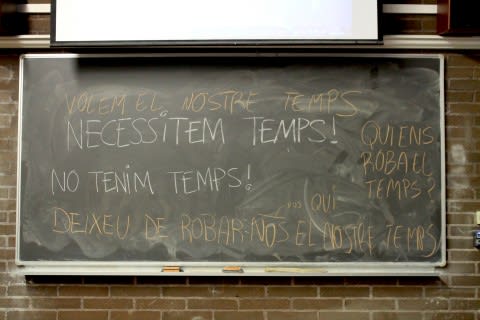 VOLEM EL NOSTRE TEMPS
NECESSITEM TEMPS!
NO TENIM TEMPS!
DEIXEU DE ROBAR-NOS EL NOSTRE TEMPS
QUI
QUI ENS
ROBA EL
TEMPS?